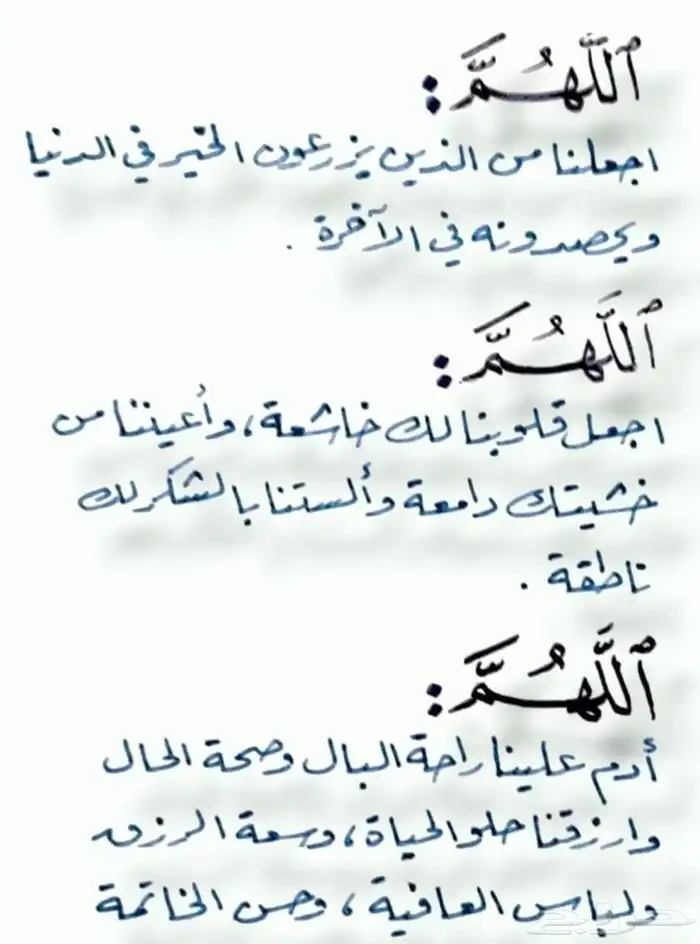 ٱللَّهُمَّ :
اجعلنا من الذين يزرعون الخير في الدنيا
ويحصدونه في الآخرة .
ٱللَّهُمَّ :
اجعل قلوبنا لك خاشعة، وأعيننا من
خشيتك دامعة وألستنا بالشكر لك
ناطقة .
ٱللَّهُمَّ :
أدم علينا راحة البال وصحة الحال
وارزقنا حلو الحياة، وسعة الرزق
ولباس العافية، وحسن الخاتمة
حراج